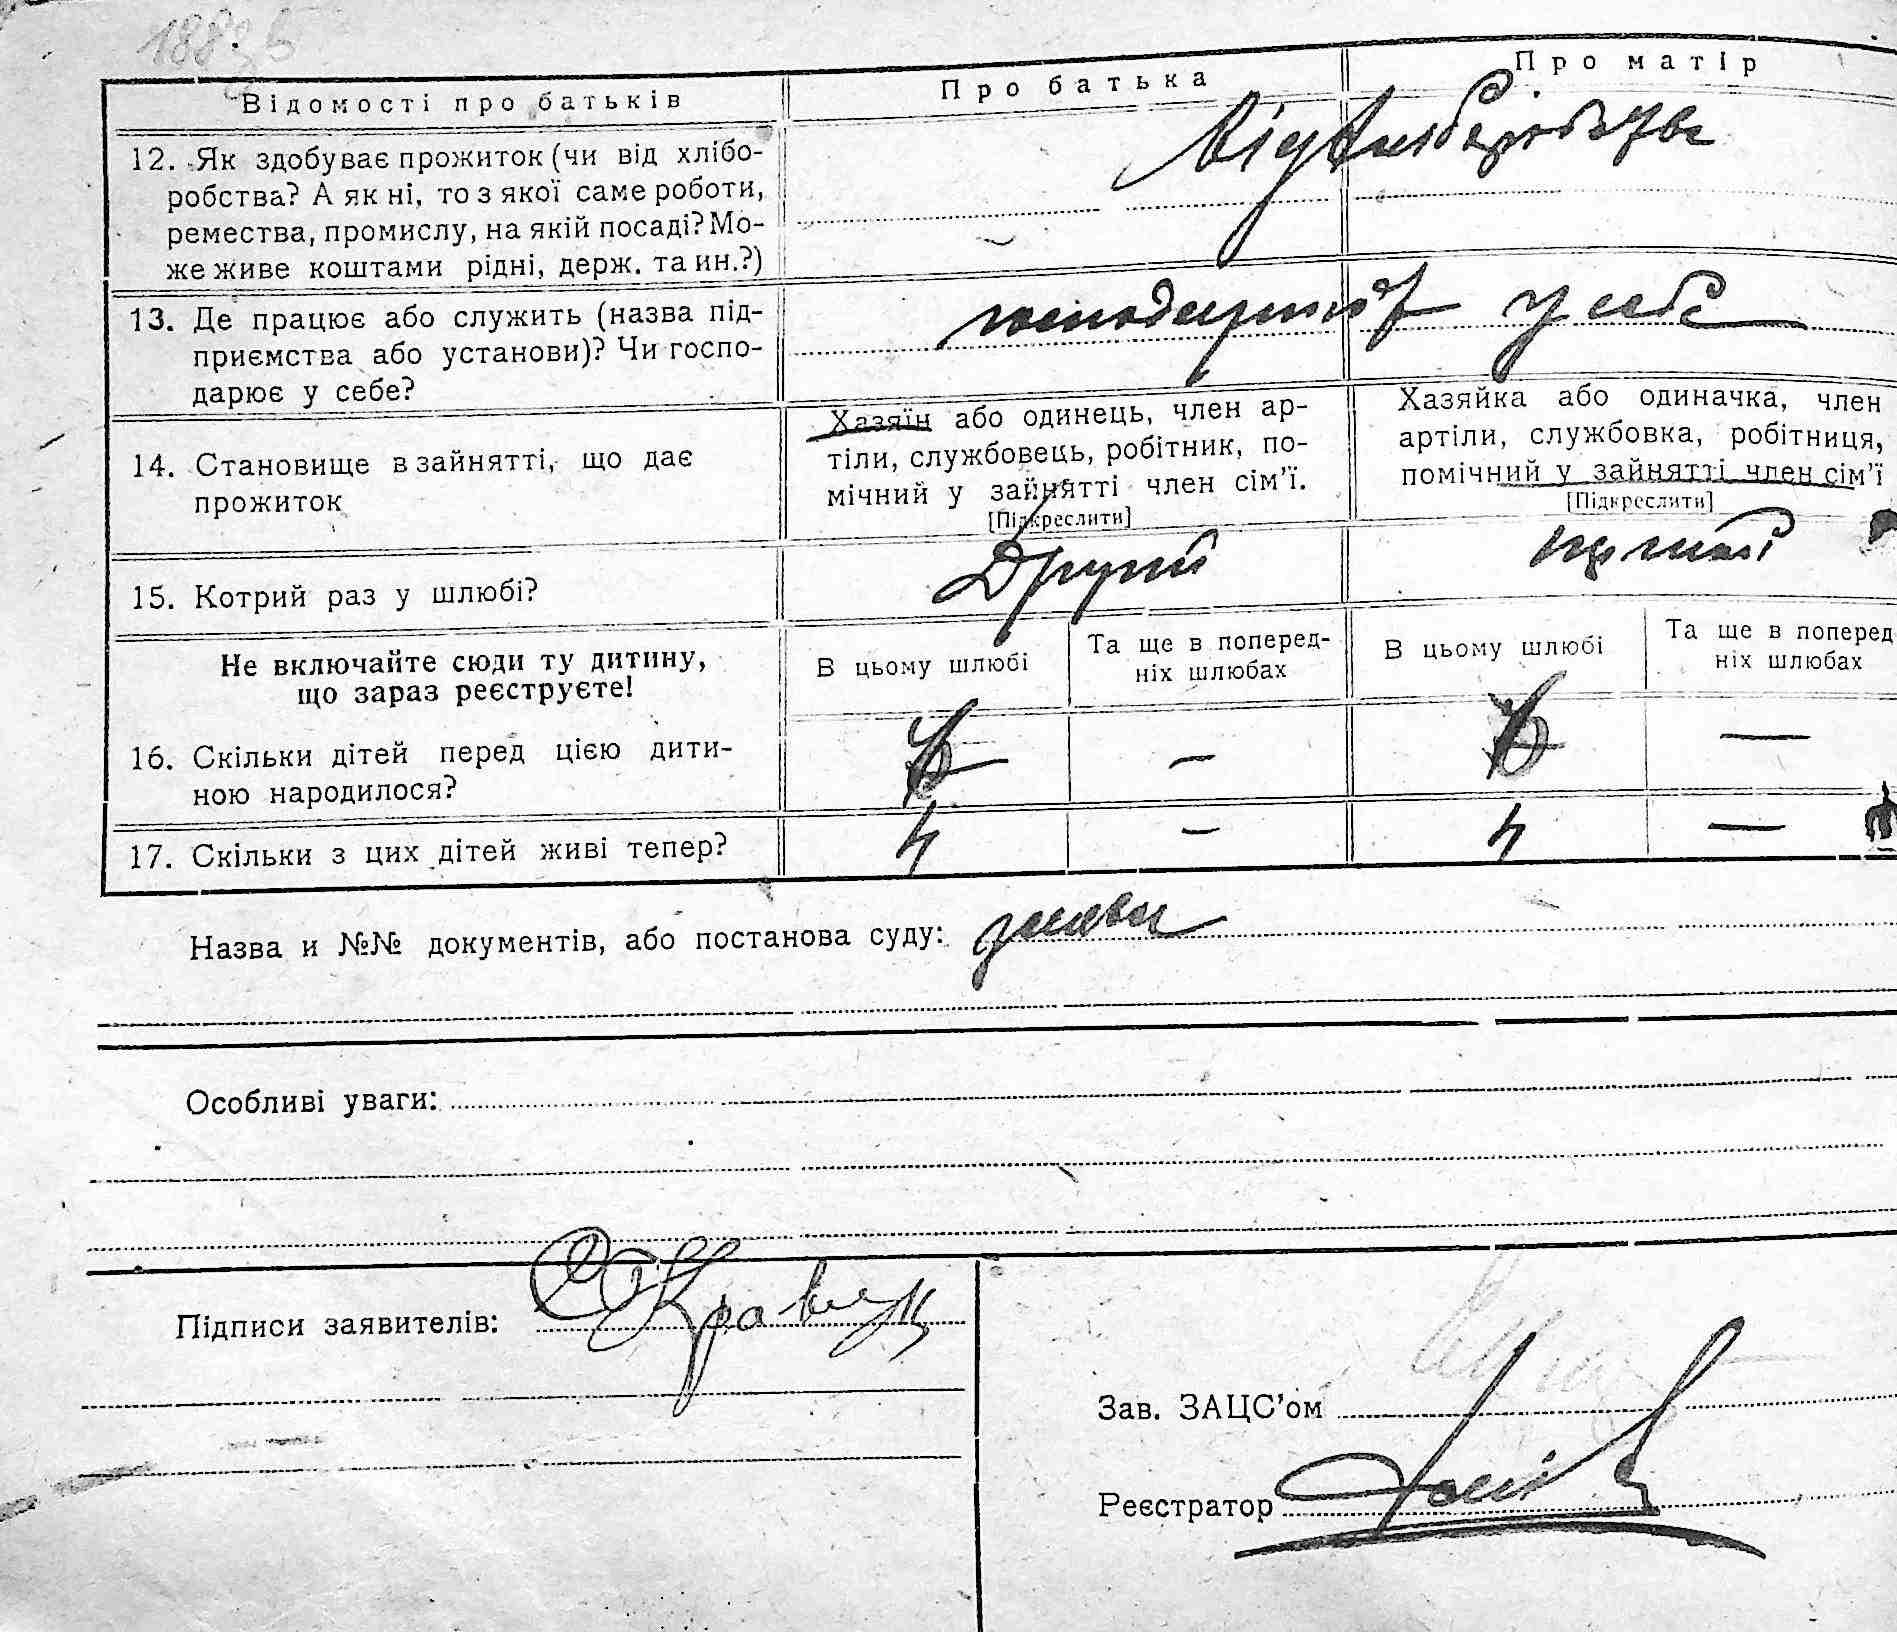 Відомості про батьків
Про батька
Про матір
12. Як здобуває прожиток (чи від хлібо-
робства? А як ні, то з якої саме роботи,
ремества, промислу, на якій посаді? Мо-
же живе коштами рідні, держ. та ин.?)
Від хліборобства
13. Де працює або служить (назва під-
приємства або установи)? Чи госпо-
дарює у себе?
у себе
14. Становище в зайнятті, що дає
прожиток
Хазяїн або одинець, член ар-
тіли, службовець, робітник, по-
мічний у зайнятті член сім'ї.
[Підкреслити]
Хазяйка або одиначка, член
артіли, службовка, робітниця,
помічний у зайнятті член сім'ї
[Підкреслити]
15. Котрий раз у шлюбі?
Другий
Не включайте сюди ту дитину,
що зараз реєструєте!
В цьому шлюбі
Та ще в поперед-
ніх шлюбах
В цьому шлюбі
Та ще в поперед-
ніх шлюбах
16. Скільки дітей перед цією дити-
ною народилося?
–
—
17. Скільки з цих дітей живі тепер?
4 – 4 —
Назва и №№ документів, або постанова суду:
Особливі уваги:
Підписи заявителів: Кравчук
Зав. ЗАЦС'ом
Реєстратор